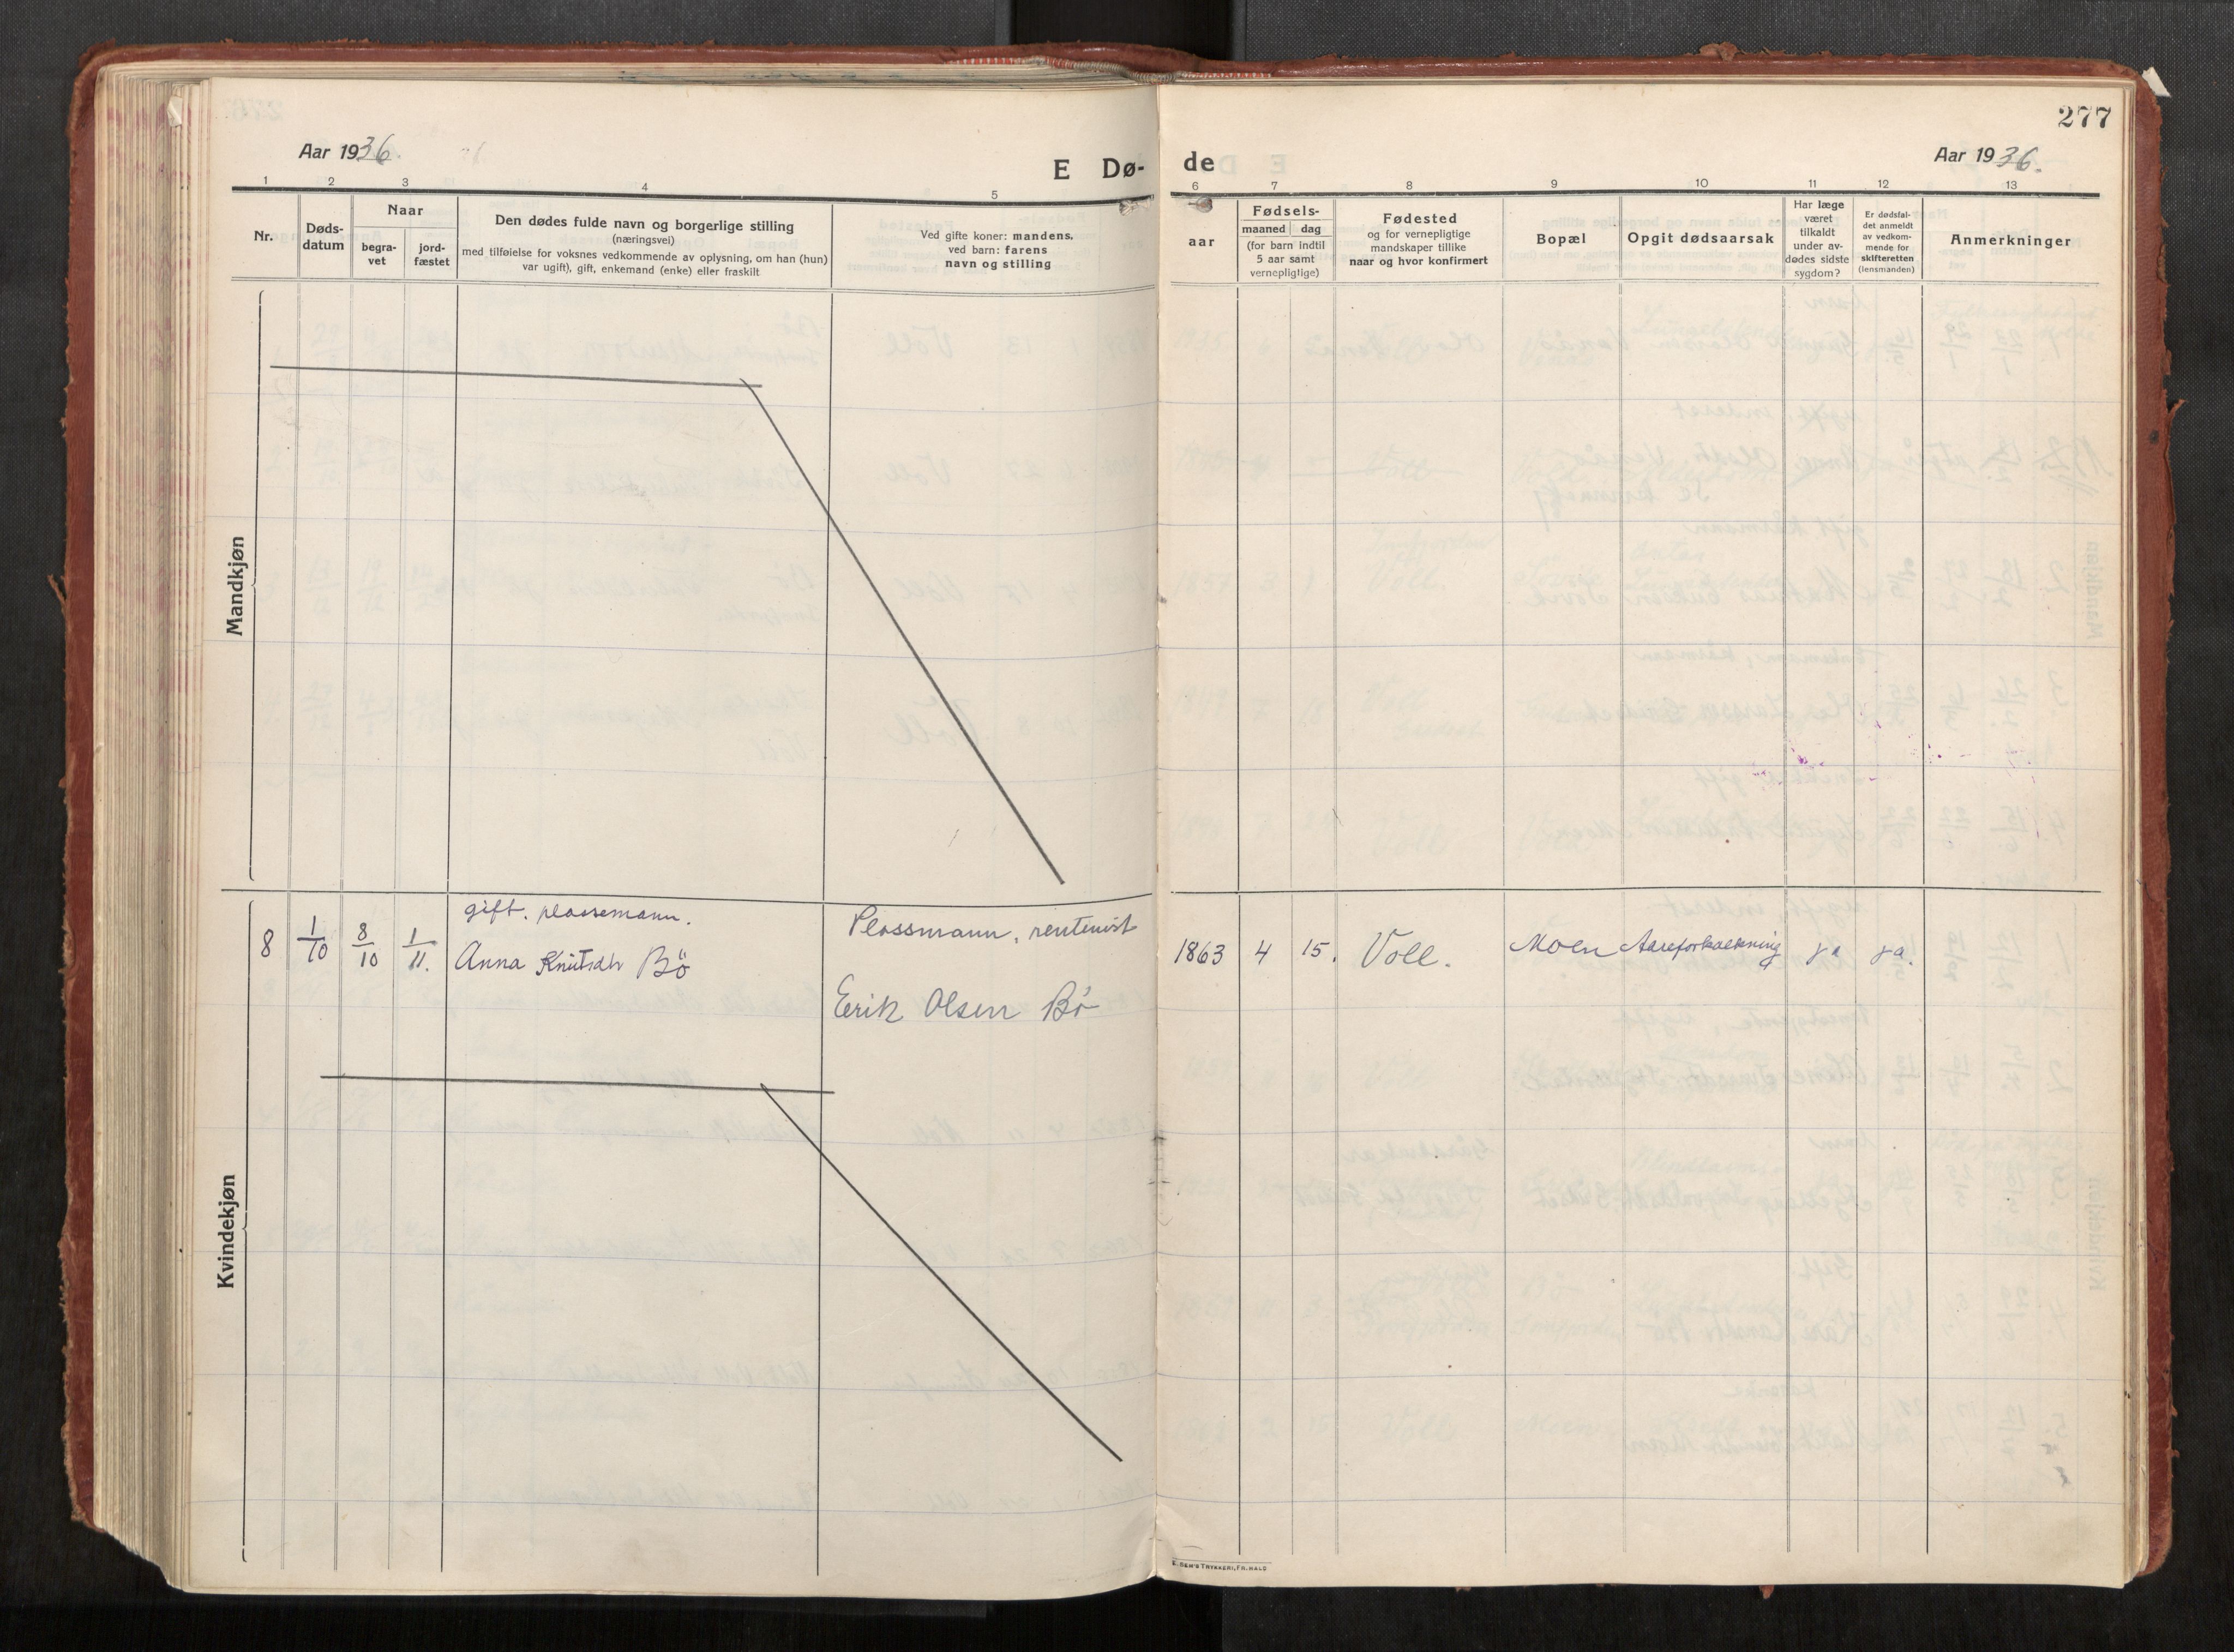 277
Aar 1936.
E Dø-
de
Aar 1936.
1 2 3 4 5 6 7 8 9 10 11 12 13
Nr.
Døds-
datum
Naar
begra-
vet
jord-
fæstet
Den dødes fulde navn og borgerlige stilling
(næringsvei)
med tilføielse for voksnes vedkommende av oplysning, om han (hun)
var ugift), gift, enkemand (enke) eller fraskilt
Ved gifte koner: mandens,
ved barn: farens
navn og stilling
aar
Fødsels-
maaned dag
(for barn indtil
5 aar samt
vernepligtige)
Fødested
og for vernepligtige
mandskaper tillike
naar og hvor konfirmert
Bopæl
Opgit dødsaarsak
Har læge
været
tilkaldt
under av-
dødes sidste
sygdom?
Er dødsfal-
det anmeldt
av vedkom-
mende for
skifteretten
(lensmanden)
Anmerkninger
Mandkjøn
Kvindekjøn
gift. plassemann.
8 1/10 8/10 1/11. Anna Knutsdtr Bö
Plassmann, rentenist
Eerik Olsen Bö
1863 4 15. Voll. Moen Aareforkalkning ja ja.
TRYKKERI, FR. HALD